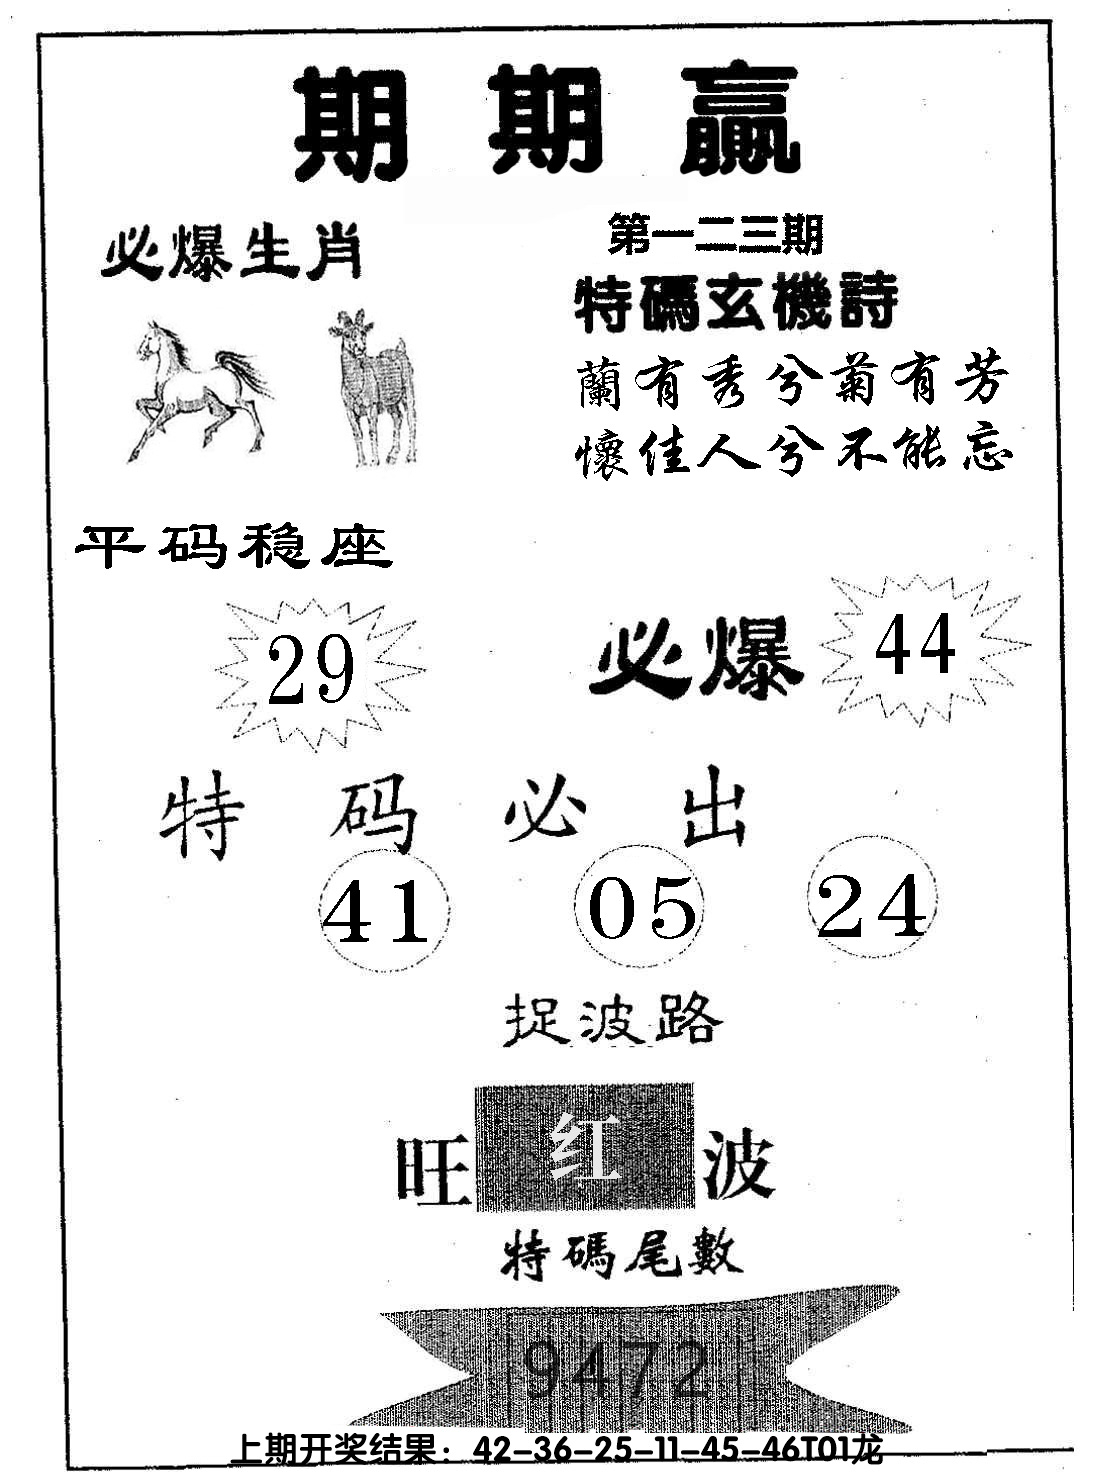 期期赢
必爆生肖
第一二三期
特碼玄機詩
蘭有秀兮菊有芳
懷佳人兮不能忘
平码稳座
29
必爆
44
特码必出
41 05 24
捉波路
旺红波
特碼尾數
9472
上期开奖结果：42-36-25-11-45-46T01龙